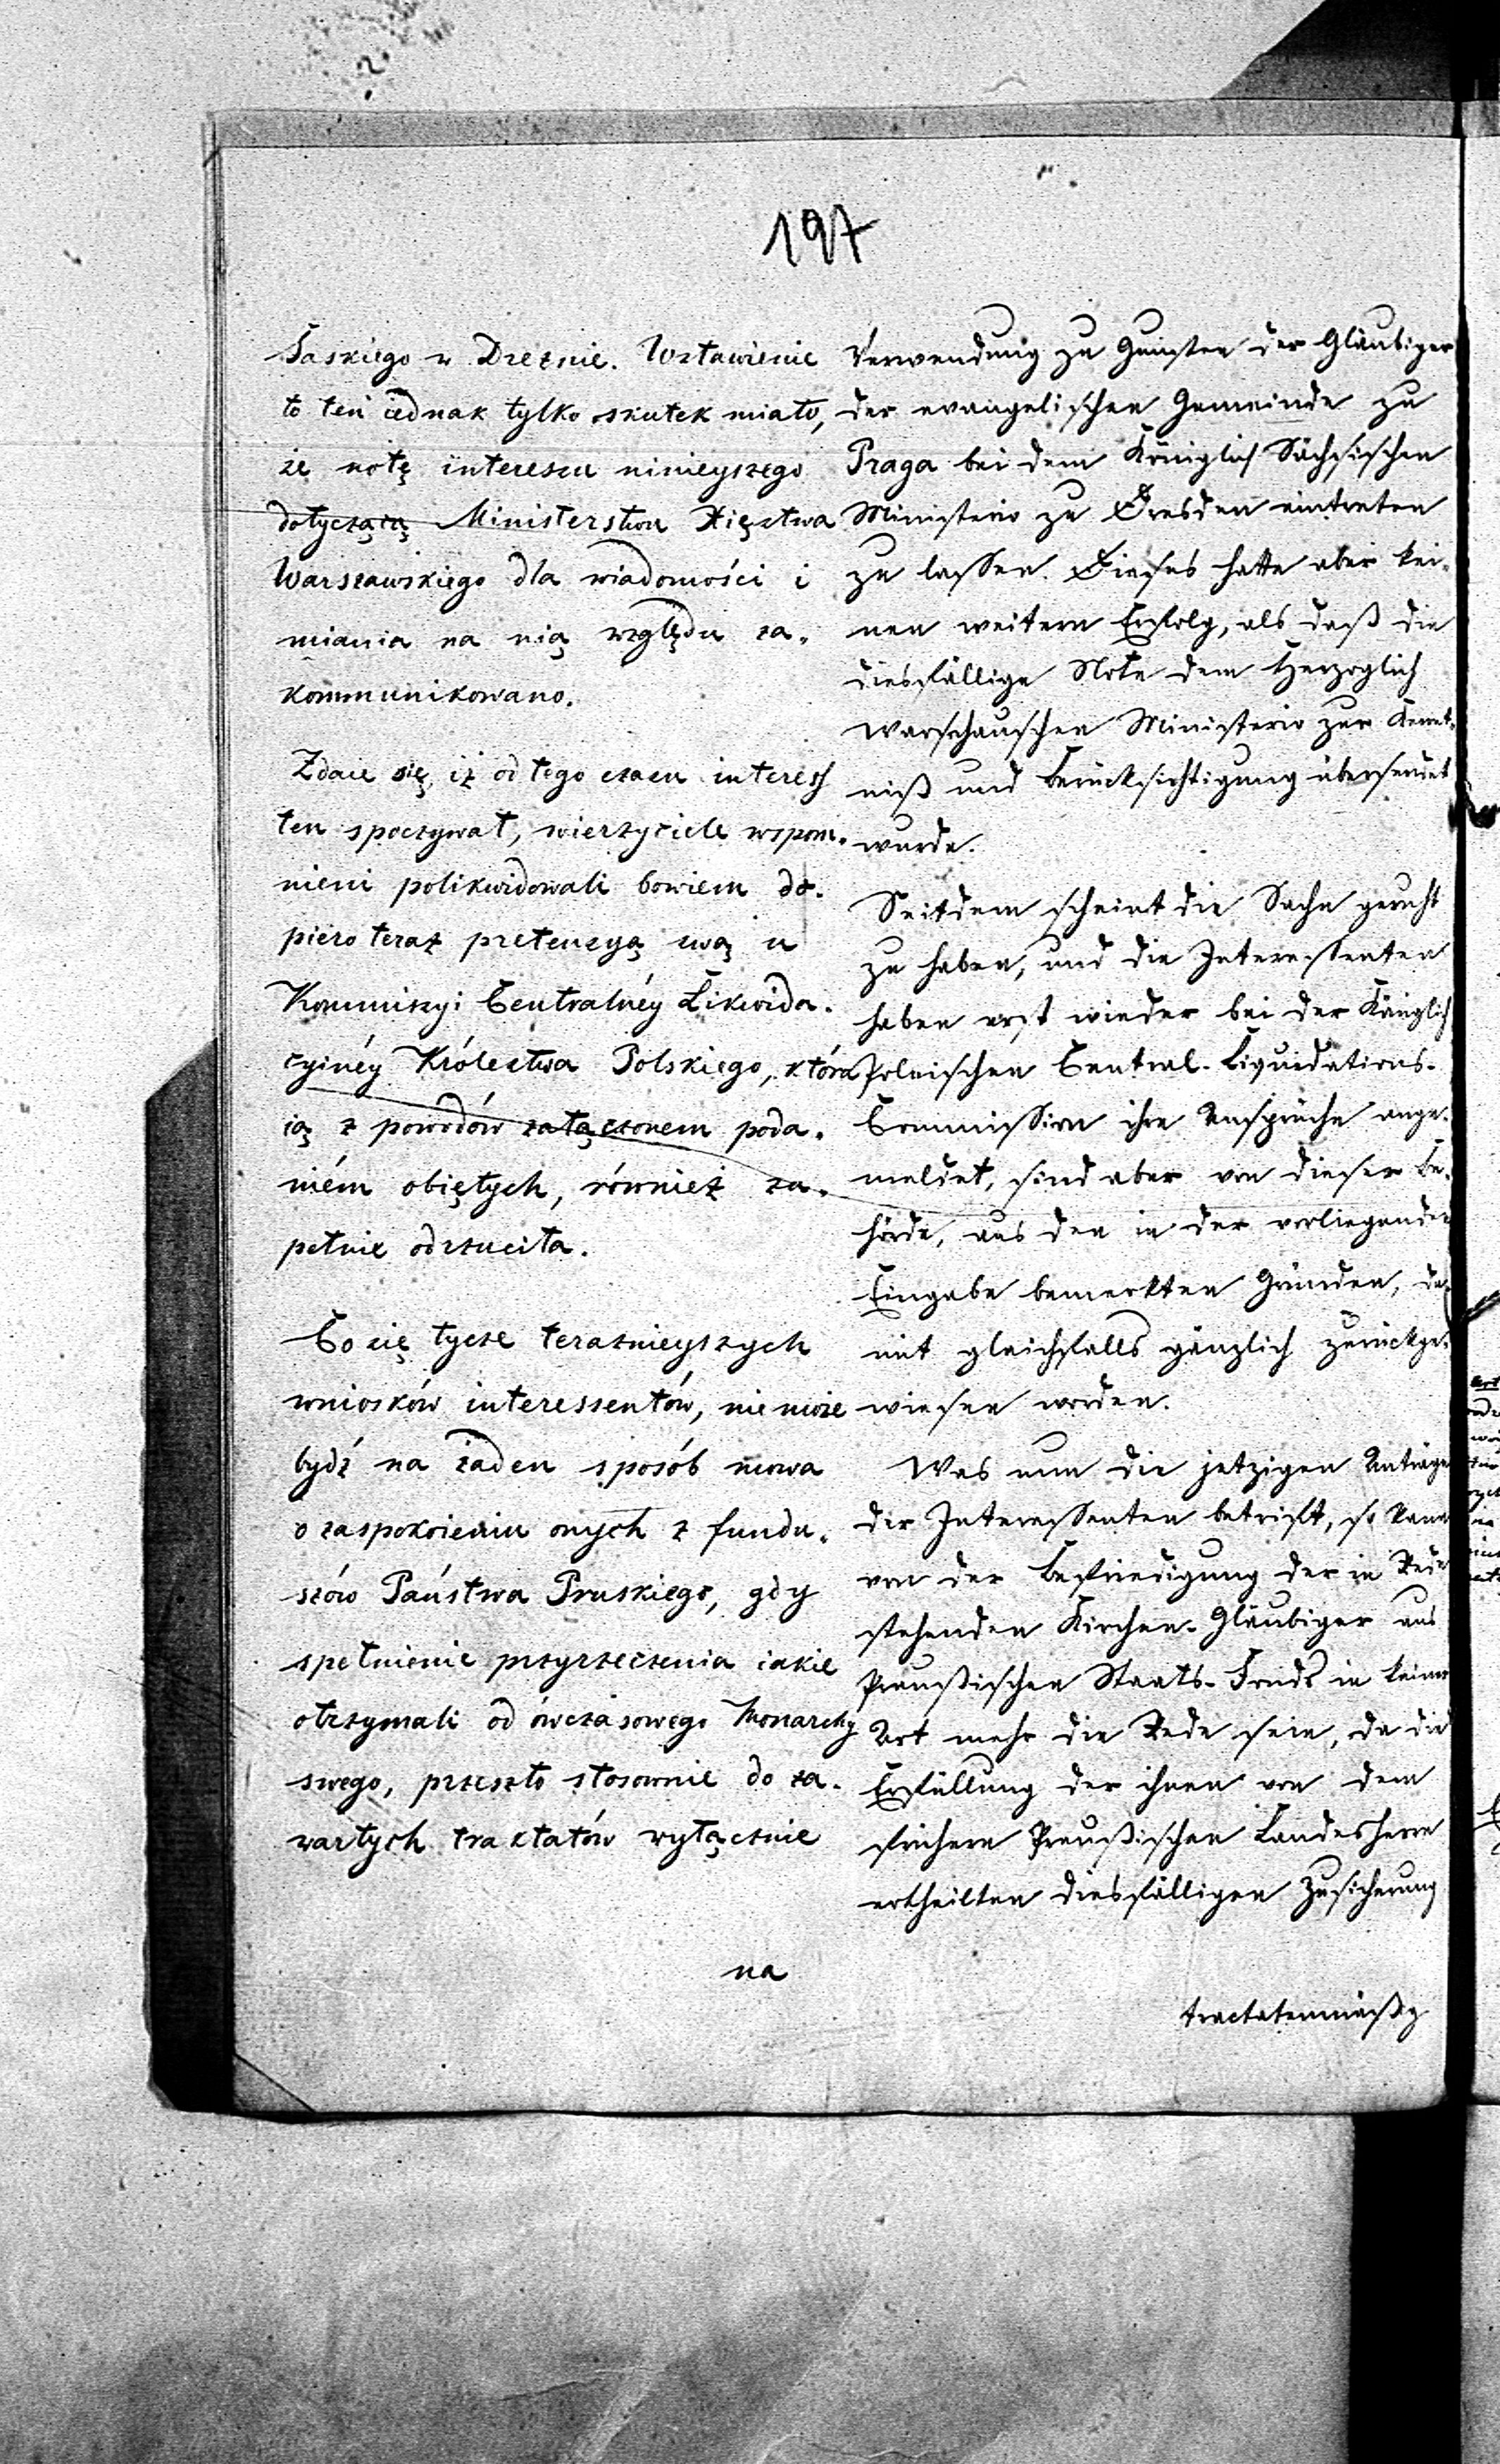 197
Saskiego w Dreznie. Wstawienie
to ten iednak tylko skutek miało,
że notę interesu ninieyszego
dotyczącą Ministerstwu Xięstwa
Warszawskiego dla wiadomości i
miania na nią względu za-
kommunikowano.
Zdaie się, iż od tego czasu interess
ten spoczywał, wierzyciele wspom-
nieni polikwidowali bowiem do-
piero teraz pretensyą swą u
Kommissyi Centralnéy Likwida-
cyinéy Królestwa Polskiego, która
ią z powodów załączonem poda-
niém obiętych, również zu-
pełnie odrzuciła.
Co się tycze teraznieyszych
wniosków interessentów, nie może
bydź na żaden sposób mowa
o zaspokoieniu onych z fundu-
szów Państwa Pruskiego, gdy
spełnienie przyrzeczenia iakie
otrzymali od ówczasowego Monarchy
swego, przeszło stosownie do za-
wartych traktatów wyłącznie
na
Verwendung zu Gunsten der Gläubiger
der evangelischen Gemeinde zu
Praga bei dem Königlich Sächsischen
Ministerio zu Dresden eintreten
zu lassen. Dieses hatte aber kei-
nen weitern Erfolg, als daß die
diesfällige Note dem Herzoglich
Warschauschen Ministerio zur Kennt-
niß und Berücksichtigung übersendet
wurde.
Seitdem scheint die Sache geruht
zu haben, und die Interessenten
haben erst wieder bei der Königlich
Polnischen Central-Liquidations-
Commission ihre Ansprüche ange-
meldet, sind aber von dieser Be-
hörde, aus den in der vorliegenden
Eingabe bemerkten Gründen, da-
mit gleichfalls gänzlich zurückge-
wiesen worden.
Was nun die jetzigen Anträge
der Interessenten betrift, so kann
von der Befriedigung der in Rede
stehenden Kirchen-Gläubiger aus
Preußischen Staats-Fonds in keiner
Art mehr die Rede sein, da die
Erfüllung der ihnen von dem
frühern Preußischen Landesherrn
ertheilten diesfälligen Zusicherung
tractatenmäßig